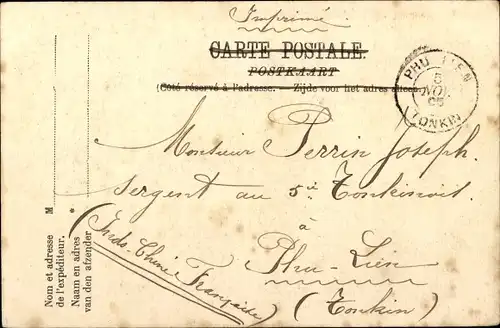 Imprimé
CARTE POSTALE.
POSTKAART
(Coté réservé à l'adresse. — Zijde voor het adres alleen.)
PHU LIEN
5
NOV.
05
TONKIN
Monsieur Perrin Joseph.
Sergent au 5ie Tonkinois
à
Phu-Lien
(Tonkin)
(Indo-Chine Française)
M
Nom et adresse
de l'expéditeur.
Naam en adres
van den afzender